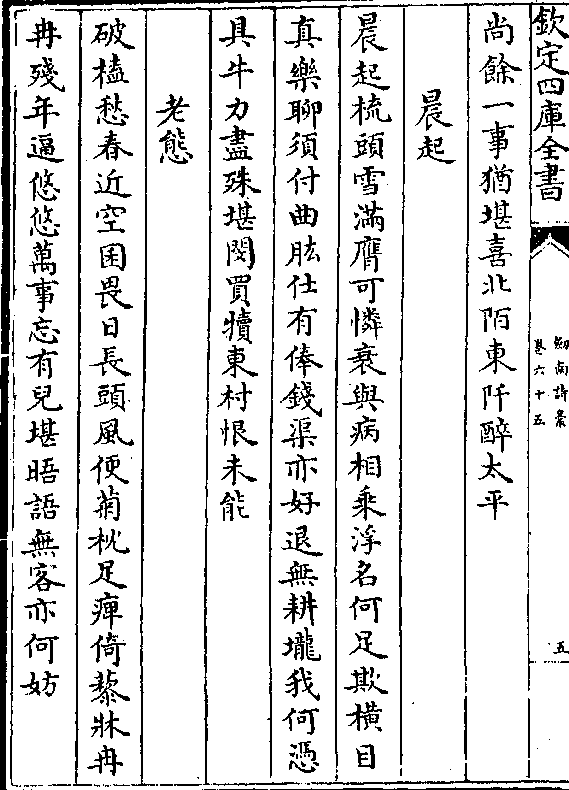 欽定四庫全書
劔南詩槀
卷六十五
五
尚餘一事猶堪喜北陌東阡醉太平
晨起
晨起梳頭雪滿膺可憐衰與病相乗浮名何足欺横目
真樂聊須付曲肱仕有俸錢渠亦好退無耕壠我何憑
具牛力盡殊堪閔買犢東村恨未能
老態
破榼愁春近空囷畏日長頭風便菊枕足痺倚藜牀冉
冉殘年逼悠悠萬事忘有兒堪晤語無客亦何妨